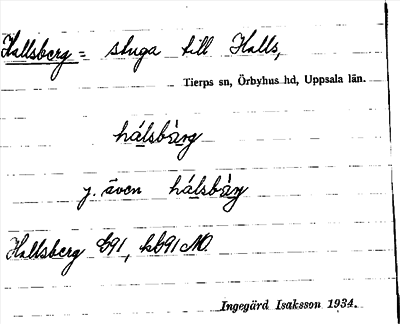 Hallsberg = stuga till Halls,
Tierps sn, Örbyhus hd, Uppsala län.
hálsbàrg
y. även hálsbàrj
Hallsberg 691, hb91 MO
Ingegärd Isaksson 1934.